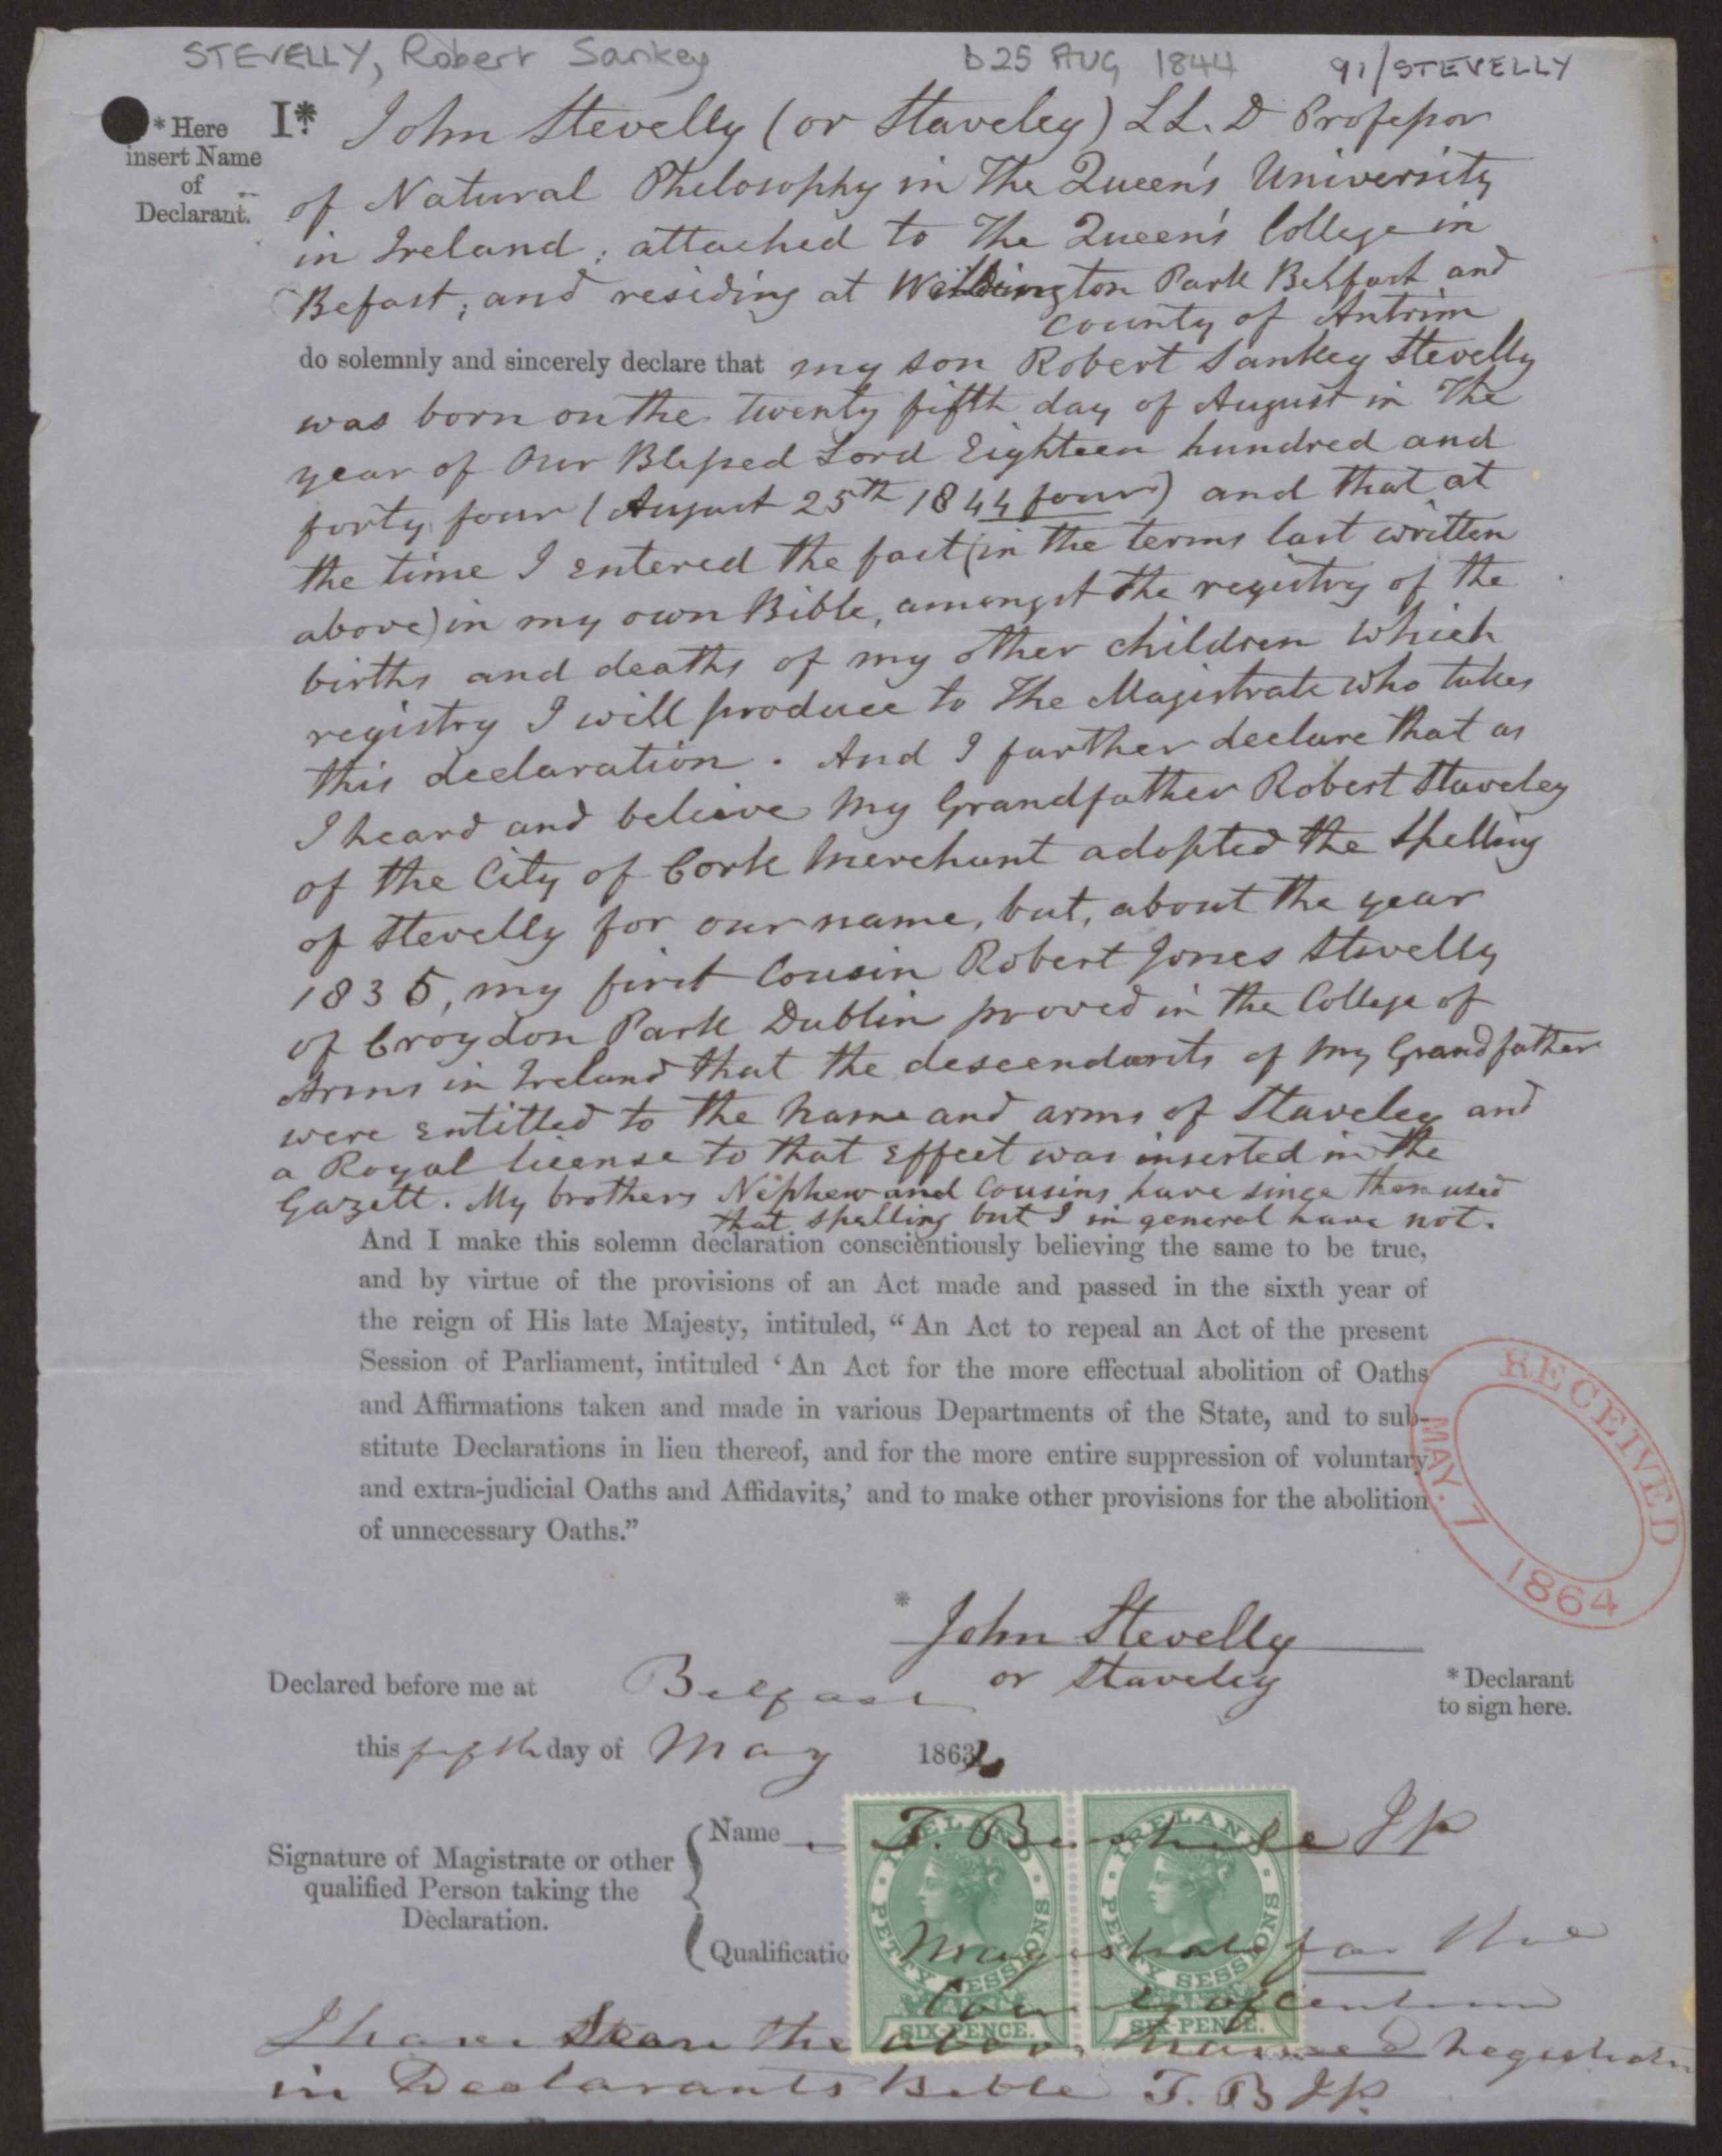 STEVELLY, Robert Sankey b 25 AUG 1844 91/STEVELLY
* Here
insert Name
of
Declarant.
I* John Stevelly (or Staveley) LL. D Professor
of Natural Philosophy in The Queen's University
in Ireland; attached to The Queen's College in
Befast; and residing at Wellington Park Belfast and
County of Antrim
do solemnly and sincerely declare that my son Robert Sankey Stevelly
was born on the twenty fifth day of August in The
year of Our Blessed Lord Eighteen hundred and
forty four (August 25th 1844 four) and that at
the time I entered the fact (in the terms last written
above) in my own Bible, amongst the registry of the
births and deaths of my other children which
registry I will produce to The Magistrate who takes
this declaration. And I further declare that as
I heard and believe My Grandfather Robert Staveley
of the City of Cork Merchant adopted the Spelling
of Stevelly for our name, but, about the year
1835, my first Cousin Robert Jones Stevelly
of Croydon Park Dublin proved in the College of
Arms in Ireland that the descendants of my Grandfather
were entitled to the name and arms of Staveley and
a Royal license to that effect was inserted in the
Gazett. My brothers Nephew and Cousins have since then used
that spelling but I in general have not.
And I make this solemn declaration conscientiously believing the same to be true,
and by virtue of the provisions of an Act made and passed in the sixth year of
the reign of His late Majesty, intituled, “An Act to repeal an Act of the present
Session of Parliament, intituled ‘An Act for the more effectual abolition of Oaths
and Affirmations taken and made in various Departments of the State, and to sub-
stitute Declarations in lieu thereof, and for the more entire suppression of voluntary
and extra-judicial Oaths and Affidavits,’ and to make other provisions for the abolition
of unnecessary Oaths.”
RECEIVED
MAY. 7
1864
* John Stevelly
or Staveley
* Declarant
to sign here.
Declared before me at Belfast
this fifth day of May 1864
Signature of Magistrate or other
qualified Person taking the
Declaration.
Name T. JP
Qualificatio Magistrate for the
County of Antrim
IRELAND
PETTY SESSIONS
SIX PENCE.
IRELAND
PETTY SESSIONS
SIX PENCE.
I have Seen the above named Registration
in Declarants Bible T. B JP